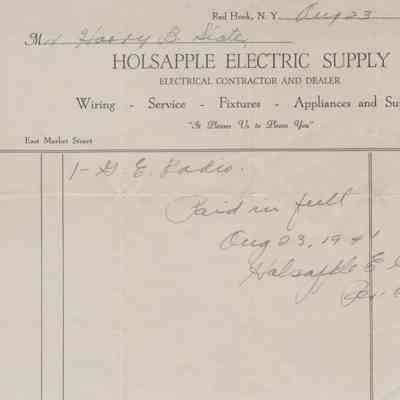 Red Hook, N. Y. Aug 23
Mr Harry B.
HOLSAPPLE ELECTRIC SUPPLY
ELECTRICAL CONTRACTOR AND DEALER
Wiring - Service - Fixtures - Appliances and Su
"It Pleases Us to Please You"
East Market Street
1 - G. E. Radio.
Paid in full
Aug 23, 1941
Holsapple E
Per.